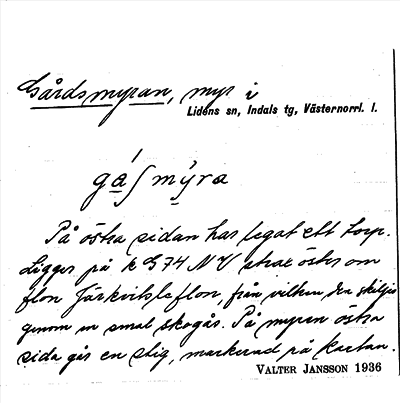 Gårdsmyran, myr i
Lidens sn, Indals tg, Västernorrl. l.
gá̱ʃmy̱ra
På östra sidan har legat ett torp.
Ligger på k G74 NV strax öster om
flon Järkvitsleflon, från vilken den skiljes
genom en smal skogås. På myren östra
sida går en stig, markerad på kartan.
VALTER JANSSON 1936